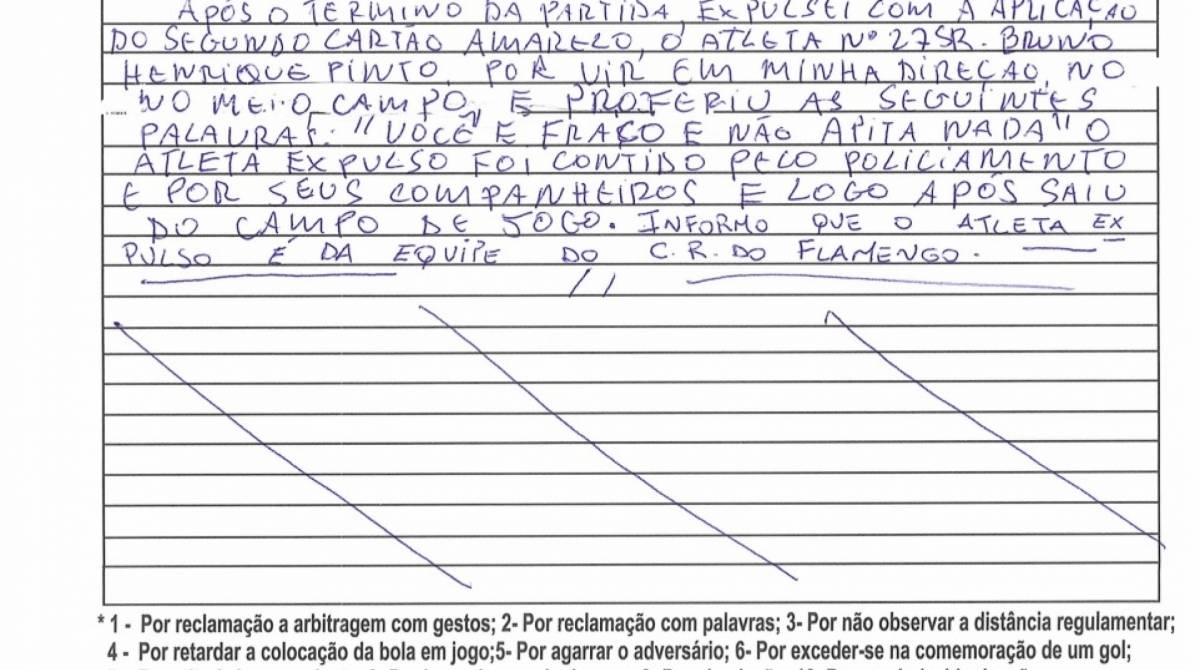 APÓS O TÉRMINO DA PARTIDA, EXPULSEI COM A APLICAÇÃO
DO SEGUNDO CARTÃO AMARELO, O ATLETA Nº 27 SR. BRUNO
HENRIQUE PINTO, POR VIR EM MINHA DIREÇÃO, NO
NO MEIO CAMPO, E PROFERIU AS SEGUINTES
PALAVRAS: "VOCÊ É FRACO E NÃO APITA NADA" O
ATLETA EXPULSO FOI CONTIDO PELO POLICIAMENTO
E POR SEUS COMPANHEIROS E LOGO APÓS SAIU
DO CAMPO DE JOGO. INFORMO QUE O ATLETA EX
PULSO É DA EQUIPE DO C.R. DO FLAMENGO.
* 1 - Por reclamação a arbitragem com gestos; 2- Por reclamação com palavras; 3- Por não observar a distância regulamentar;
4 - Por retardar a colocação da bola em jogo;5- Por agarrar o adversário; 6- Por exceder-se na comemoração de um gol;